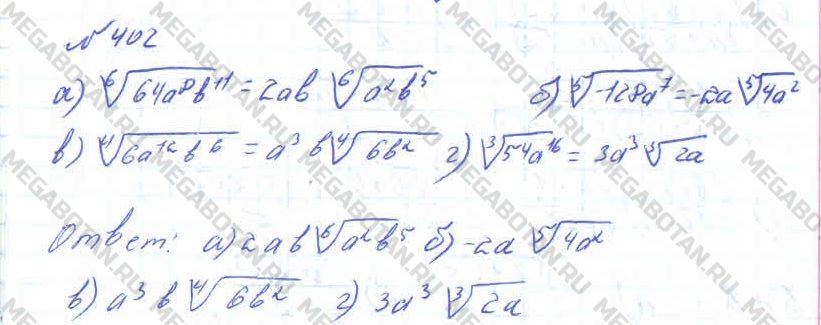 № 402
а) ⁶√(64a⁸b¹¹) = 2ab ⁶√(a²b⁵) б) ⁵√(-128a⁷) = -2a ⁵√(4a²)
в) ⁴√(6a¹²b⁶) = a³b ⁴√(6b²) г) ³√(54a¹⁶) = 3a³ ³√(2a)
Ответ: а) 2ab ⁶√(a²b⁵) б) -2a ⁵√(4a²)
в) a³b ⁴√(6b²) г) 3a³ ³√(2a)
MEGABOTAN.RU